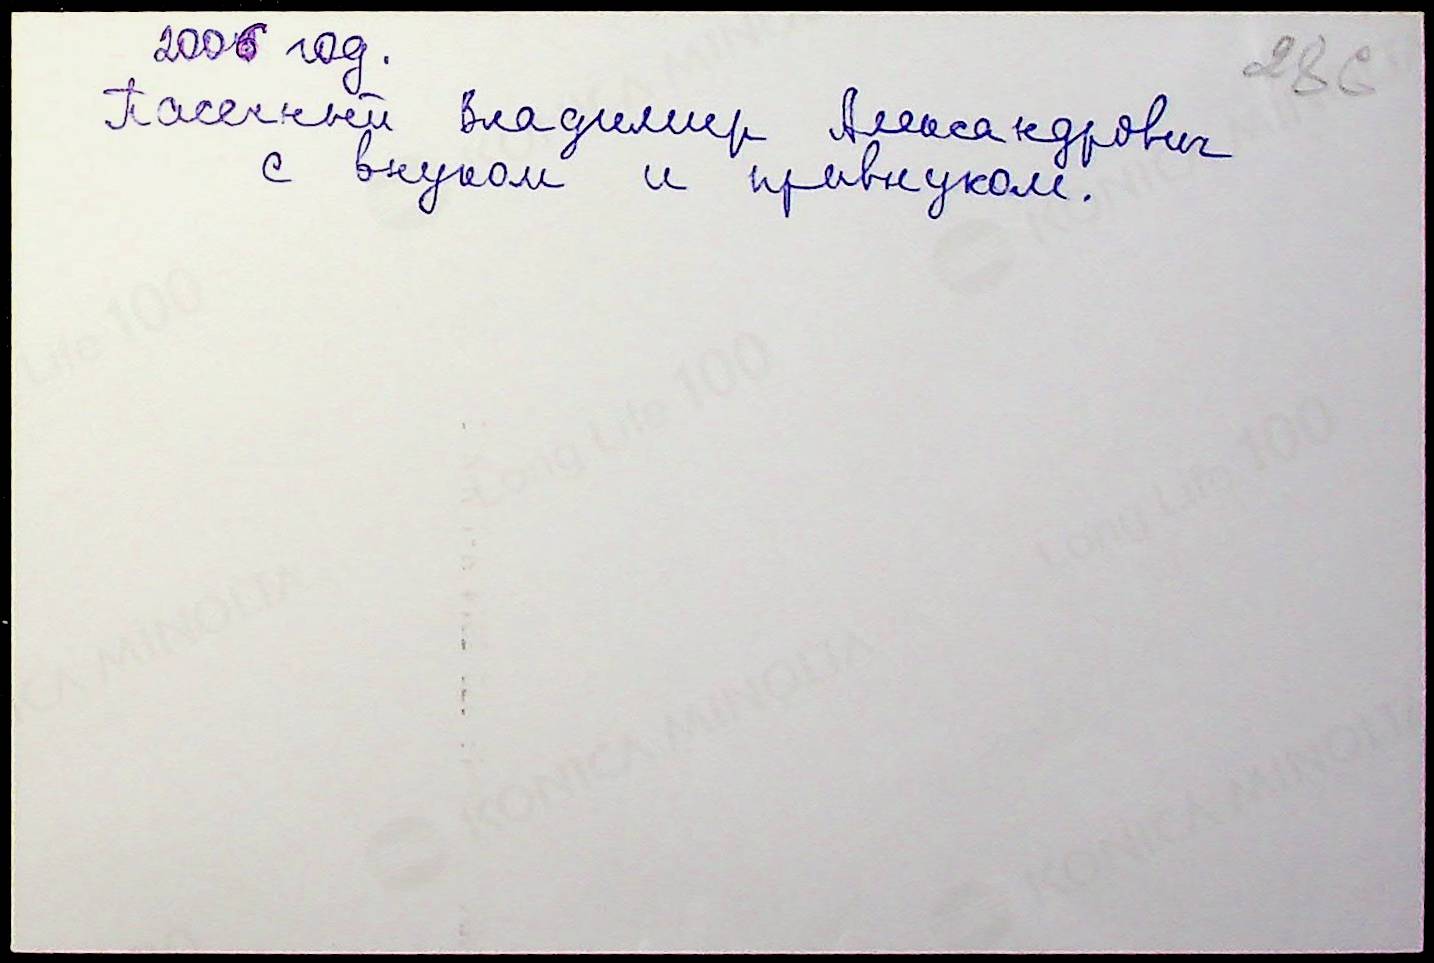 2006 год.
28с
Пасечный Владимир Александрович
с внуком и правнуком.
KONICA MINOLTA
KONICA MINOLTA
Life 100
Long Life 100
Long Life 100
KONICA MINOLTA
KONICA MINOLTA
KONICA MINOLTA